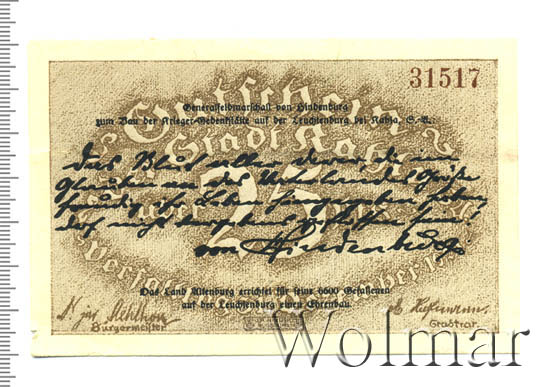 31517
Gutschein
Generalfeldmarschall von Hindenburg
zum Bau der Krieger-Gedenkstätte auf der Leuchtenburg bei Kahla, S.-A.:
Stadt Kahla
Das Blut aller derer, die im
Glauben an des Vaterlandes Größe
freudig ihr Leben hingegeben haben,
darf nicht vergebens geflossen sein!
75
von Hindenburg
Das Land Altenburg errichtet für seine 6600 Gefallenen
auf der Leuchtenburg einen Ehrenbau.
Bürgermeister
Stadtrat
Wolmar